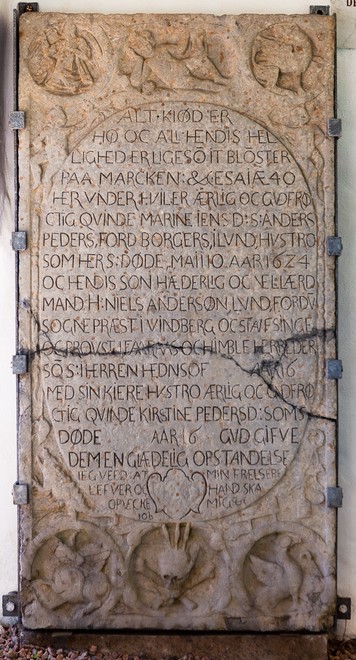 ALT KIØD ER
HØ OC ALL HENDIS HEL
LIGHED ER LIGESÕ IT BLOSTER
PAA MARCKEN: &c ESAIÆ 40
HER VNDER HVILER ÆRLIG OC GUDFRØ
CTIG QVINDE MARINE IENS D: S: ANDERS
PEDERS, FORD BORGERS, I LVND, HVSTRO
SOM HER S: DØDE, MAI 10 AAR 1624
OC HENDIS SØN HÆDERLIG OC VELLÆRD
MAND H: NIELS ANDERSØN LVND, FORDV
SOGNE PRÆST I VINDBERG OC STAFSINGE
OC PROVST I HERREDER
SOS: I HERREN HEDNSOF AAR 16
MED SIN KIERE HVSTRO ÆRLIG OC GUDFRØ
CTIG QVINDE KIRSTINE PEDERSD: SOM S
DØDE AAR 16 GVD GIFVE
DEM EN GLÆDELIG OPSTANDELSE
IEG VEED AT MIN FRELSERE
LEFVER OC HAND SKA
OPVECKE MIG
IOB